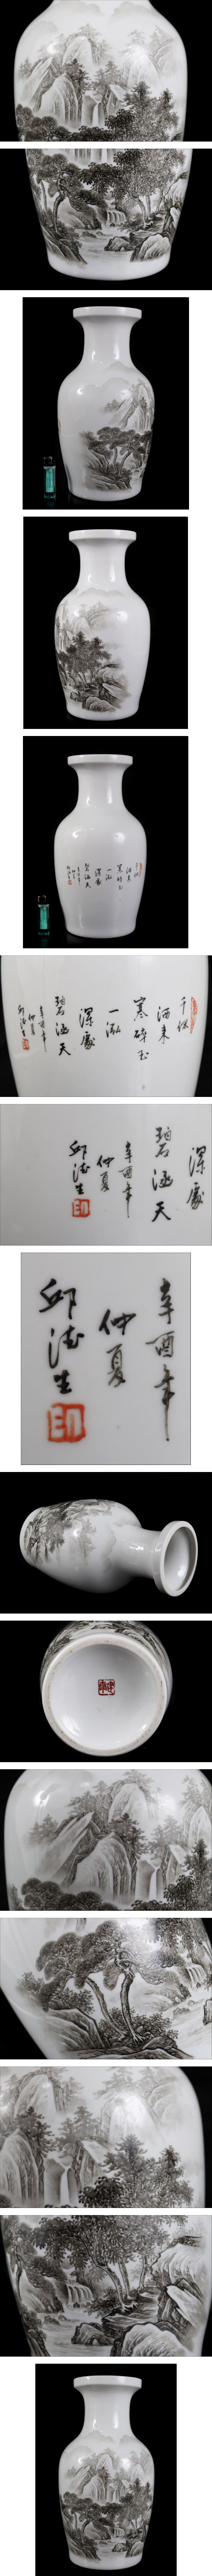 千仞
洒来
寒碎玉
一泓
深處
碧涵天
辛酉年
仲夏
邱德生
印